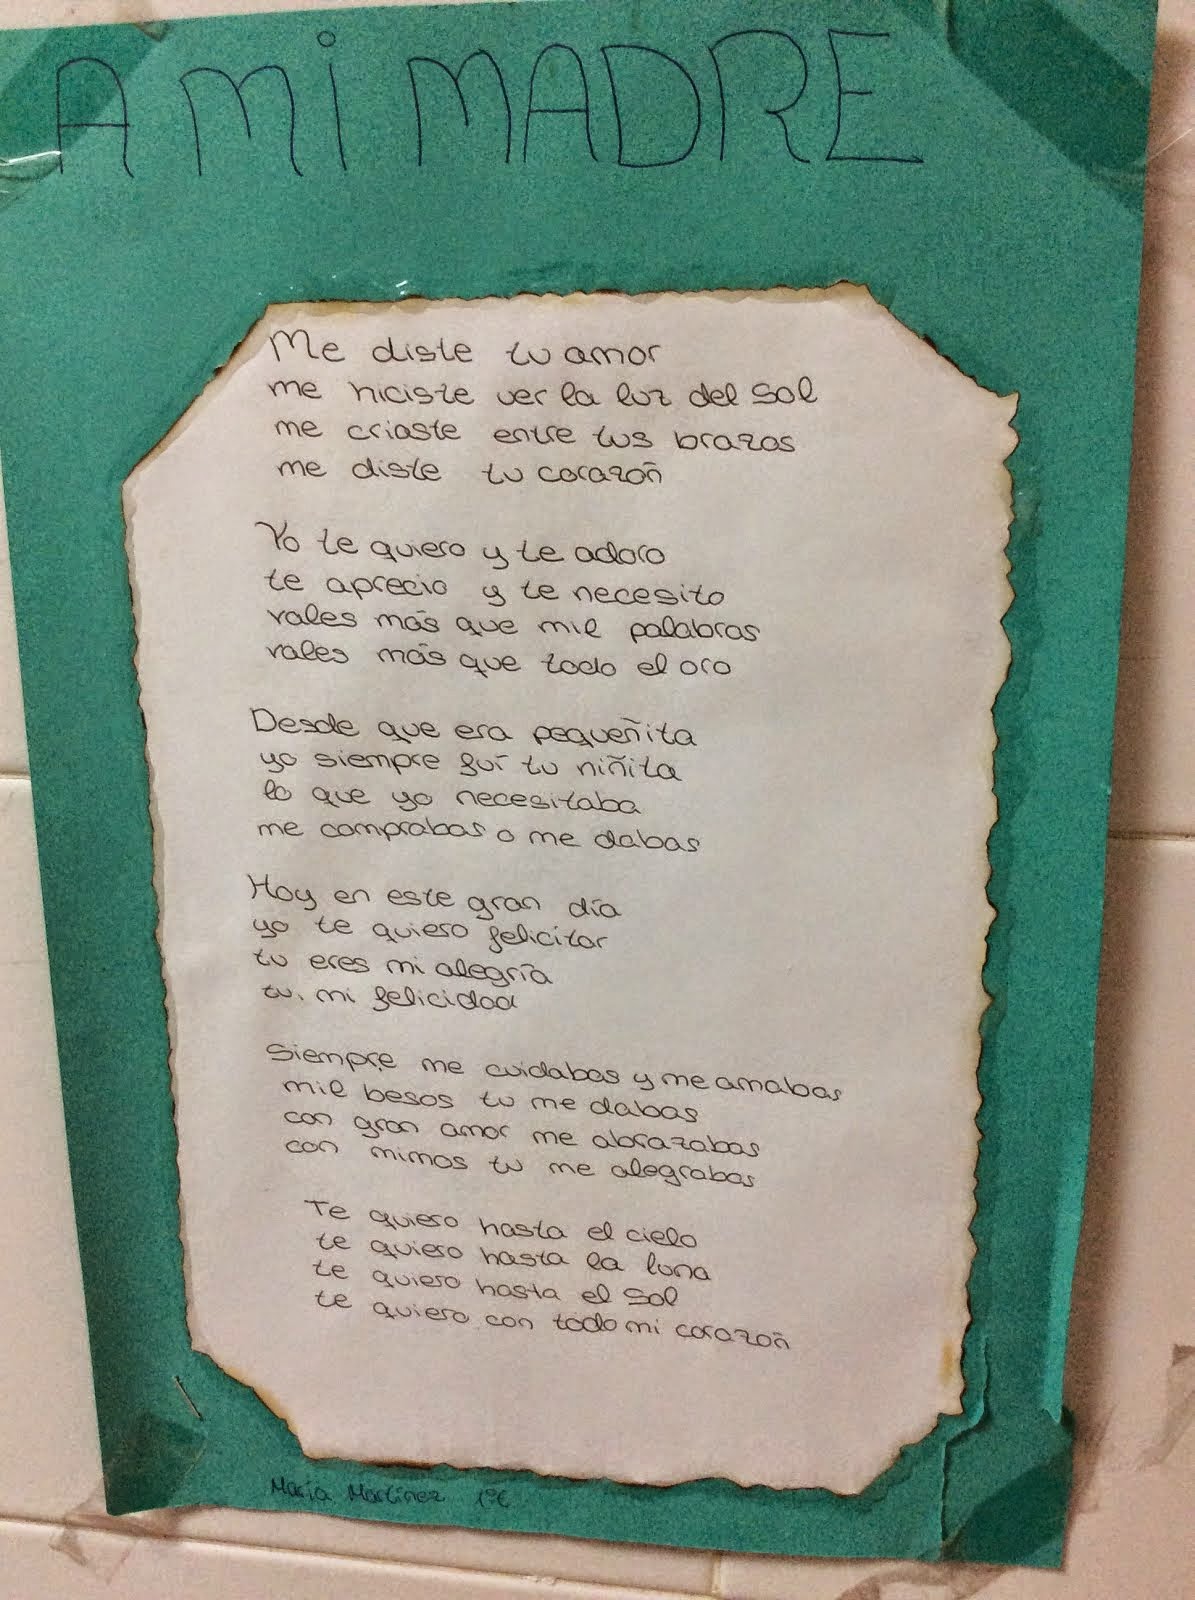 A MI MADRE
Me diste tu amor
me hiciste ver la luz del sol
me criaste entre tus brazos
me diste tu corazón
Yo te quiero y te adoro
te aprecio y te necesito
vales más que mil palabras
vales más que todo el oro
Desde que era pequeñita
yo siempre fuí tu niñita
lo que yo necesitaba
me comprabas o me dabas
Hoy en este gran día
yo te quiero felicitar
tu eres mi alegría
tu, mi felicidad
Siempre me cuidabas y me amabas
mil besos tu me dabas
con gran amor me abrazabas
con mimos tu me alegrabas
Te quiero hasta el cielo
te quiero hasta la luna
te quiero hasta el sol
te quiero con todo mi corazón
María Martínez 1ºC